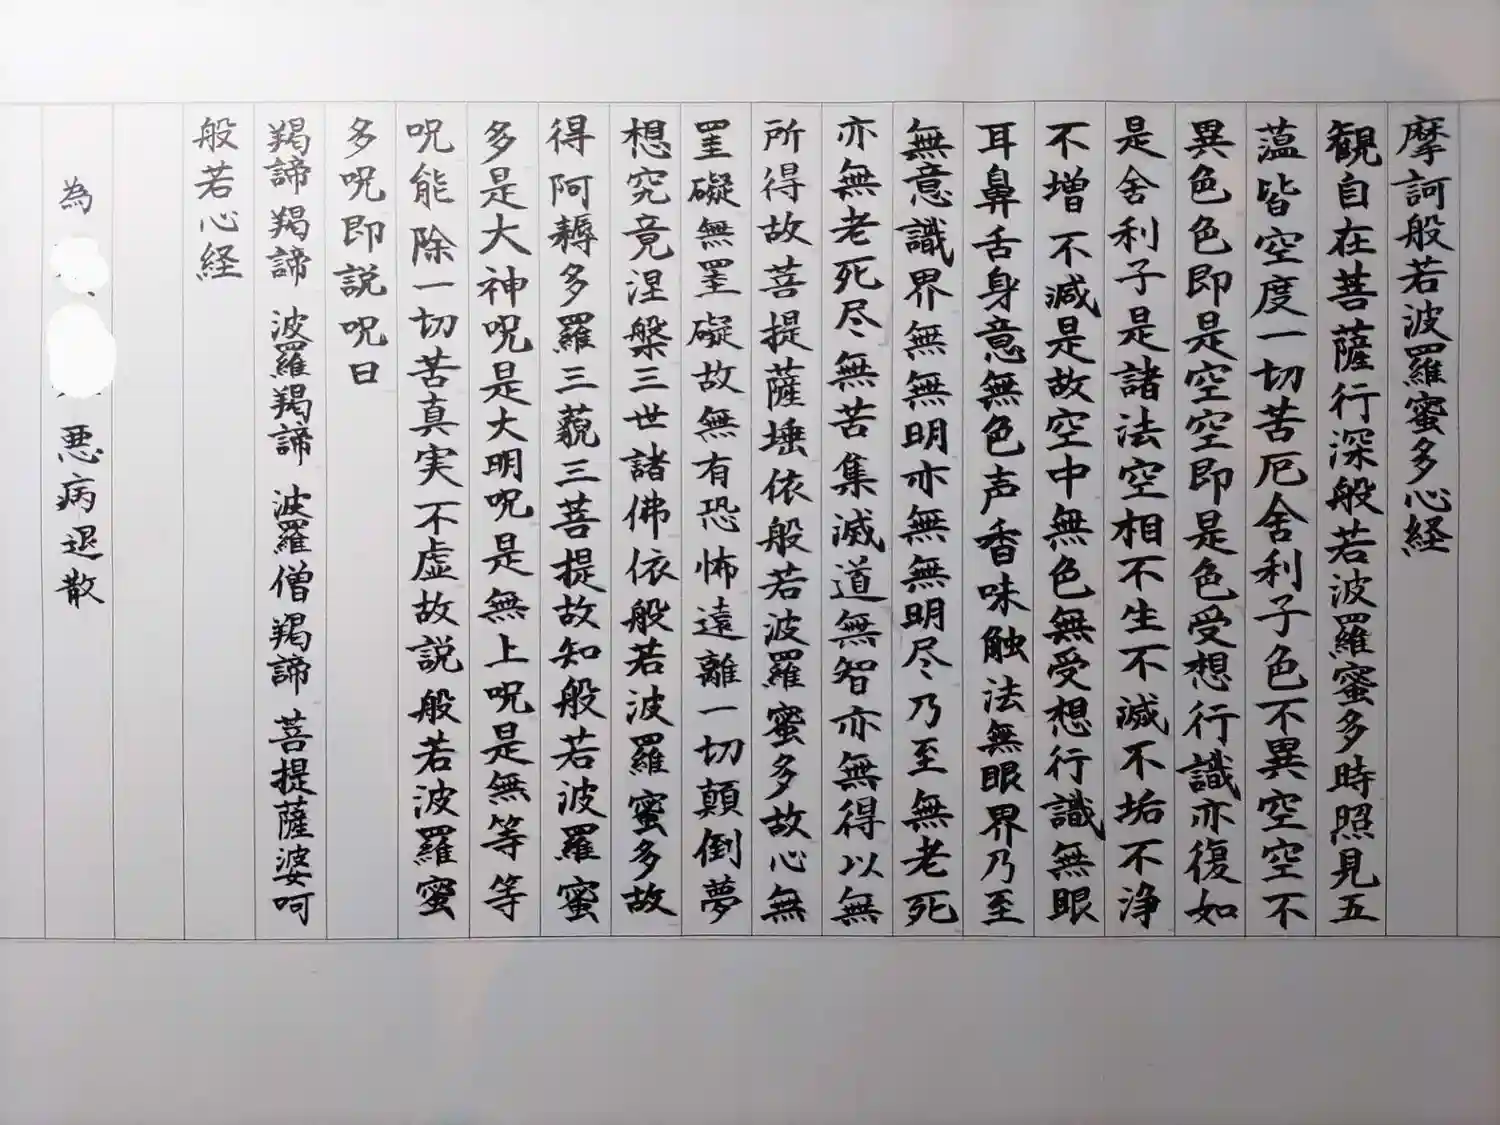 摩訶般若波羅蜜多心経
観自在菩薩行深般若波羅蜜多時照見五
蘊皆空度一切苦厄舍利子色不異空空不
異色色即是空空即是色受想行識亦復如
是舍利子是諸法空相不生不滅不垢不浄
不増不減是故空中無色無受想行識無眼
耳鼻舌身意無色声香味触法無眼界乃至
無意識界無無明亦無無明尽乃至無老死
亦無老死尽無苦集滅道無智亦無得以無
所得故菩提薩埵依般若波羅蜜多故心無
罣礙無罣礙故無有恐怖遠離一切顛倒夢
想究竟涅槃三世諸佛依般若波羅蜜多故
得阿耨多羅三藐三菩提故知般若波羅蜜
多是大神呪是大明呪是無上呪是無等等
呪能除一切苦真実不虚故説般若波羅蜜
多呪即説呪曰
羯諦羯諦 波羅羯諦 波羅僧羯諦 菩提薩婆呵
般若心経
為 悪病退散